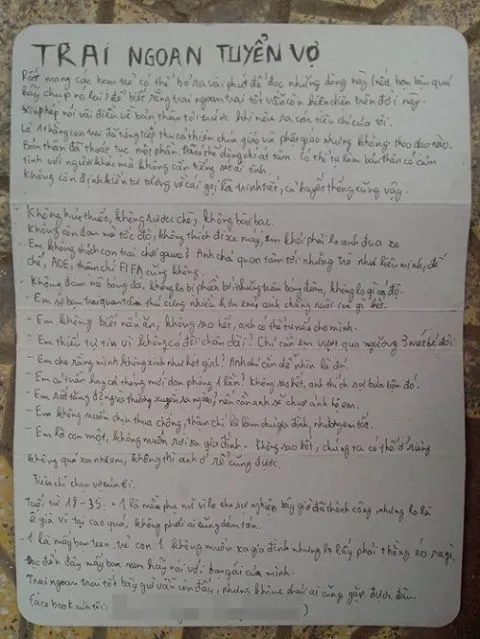 TRAI NGOAN TUYỂN VỢ
Rất mong các bạn trẻ có thể bỏ ra vài phút để đọc những dòng này (nếu bạn bận quá
hãy chụp nó lại) để biết rằng trai ngoan trai tốt vẫn còn hiện diện trên đời này.
Xin phép nói vài điều về bản thân tôi trước khi nêu ra các tiêu chí của tôi.
Là 1 thằng con trai đã từng tiếp thu cả thiên chúa giáo và phật giáo nhưng không theo đạo nào.
Bản thân đã thoát tục một phần để đồng khí tại tâm. Có thể tự làm bản thân có cảm
tình với người khác mà không cần tiếng sét ái tình.
Không còn định kiến tư tưởng về cái gọi là trinh tiết, cả huyết thống cũng vậy.
- Không hút thuốc, không rượu chè, không bài bạc.
Không còn đam mê tốc độ, không thích đi xe máy, em khỏi phải lo anh đua xe
- Em không thích con trai chơi game? Anh chả quan tâm tới những trò như liên minh, đế
chế, AOE, thậm chí FIFA cũng không.
- Không đam mê bóng đá, không lo bị phiền bởi những trận bóng đêm, không lo gì cá độ.
- Em sợ bạn trai quan tâm thú cưng nhiều hơn em? anh chẳng nuôi con gì hết.
- Em không biết nấu ăn, không sao hết, anh có thể tự nấu cho mình.
- Em thiếu tự tin vì không có đôi chân dài? Chỉ cần em vượt qua ngưỡng 3 mét bẻ đôi
- Em cho rằng mình không xinh như hot girl? Anh chỉ cần dễ nhìn là đủ
- Em cả tuần hay cả tháng mới dọn phòng 1 lần? Không sao hết, anh thích sự bừa bộn đó.
- Em sợ tông động vô thường xuyên sa ngoài, nếu cần anh sẽ chụp ảnh hộ em.
- Em không muốn chịu thua chồng, thậm chí là làm chủ gia đình, nhường em tất.
- Em là con một, không muốn rời xa gia đình. Không sao hết, chúng ta có thể ở riêng
không quá xa nhà em, không thì anh ở rể cũng được.
Tiêu chí chọn vợ của tôi.
Tuổi từ 18-35. - 1 là mẫu phụ nữ vì lo cho sự nghiệp bây giờ đã thành công nhưng lo là
ế già vì tại cao quá, không phải ai cũng dám tơn.
- 1 là mấy bạn teen, trẻ con 1 không muốn xa gia đình nhưng lo lấy phải thằng éo ra gì.
Đọc đến đây mấy bạn nam hãy nói với bạn gái của mình.
Trai ngoan trai tốt bây giờ vẫn còn đấy, nhưng không phải ai cũng gặp được đâu.
facebook của tôi: )